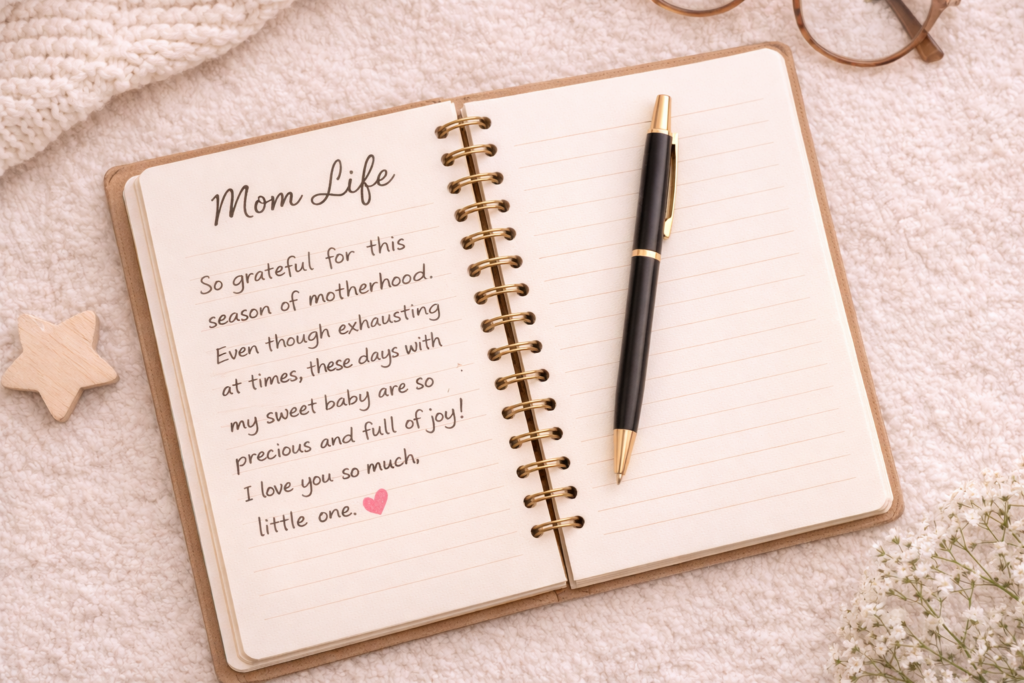 Mom Life
So grateful for this
season of motherhood.
Even though exhausting
at times, these days with
my sweet baby are so
precious and full of joy!
I love you so much,
little one.